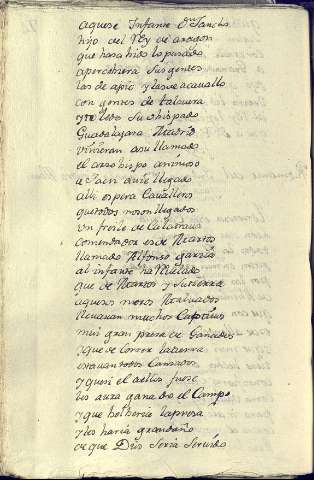 aquese Infante Dn Sancho
hijo del Rey de aragon
que hasa hido lo pasado
apercebiera sus gentes
las de apie y las de acauallo
con gentes de talauera
y toledo su obispado
Guadalajara Madrid
vinieran a su llamado
el arzobispo animoso
a Jaen auie llegado
alli espera Caualleros
que todos no son llegados
un fraile de Calatraua
comendador es de Martos
llamado Alfonso garzia
al infante ha
que de Martos y
aquesos moros Maluados
lleuauan muchos Captivos
mui gran presa de Ganados
y que de correr la tierra
estauan todos Cansados
y quen el a ellos fuese
les aura ganado el Campo
y que les la presa
y les haria gran daño
de que Dios seria seruido